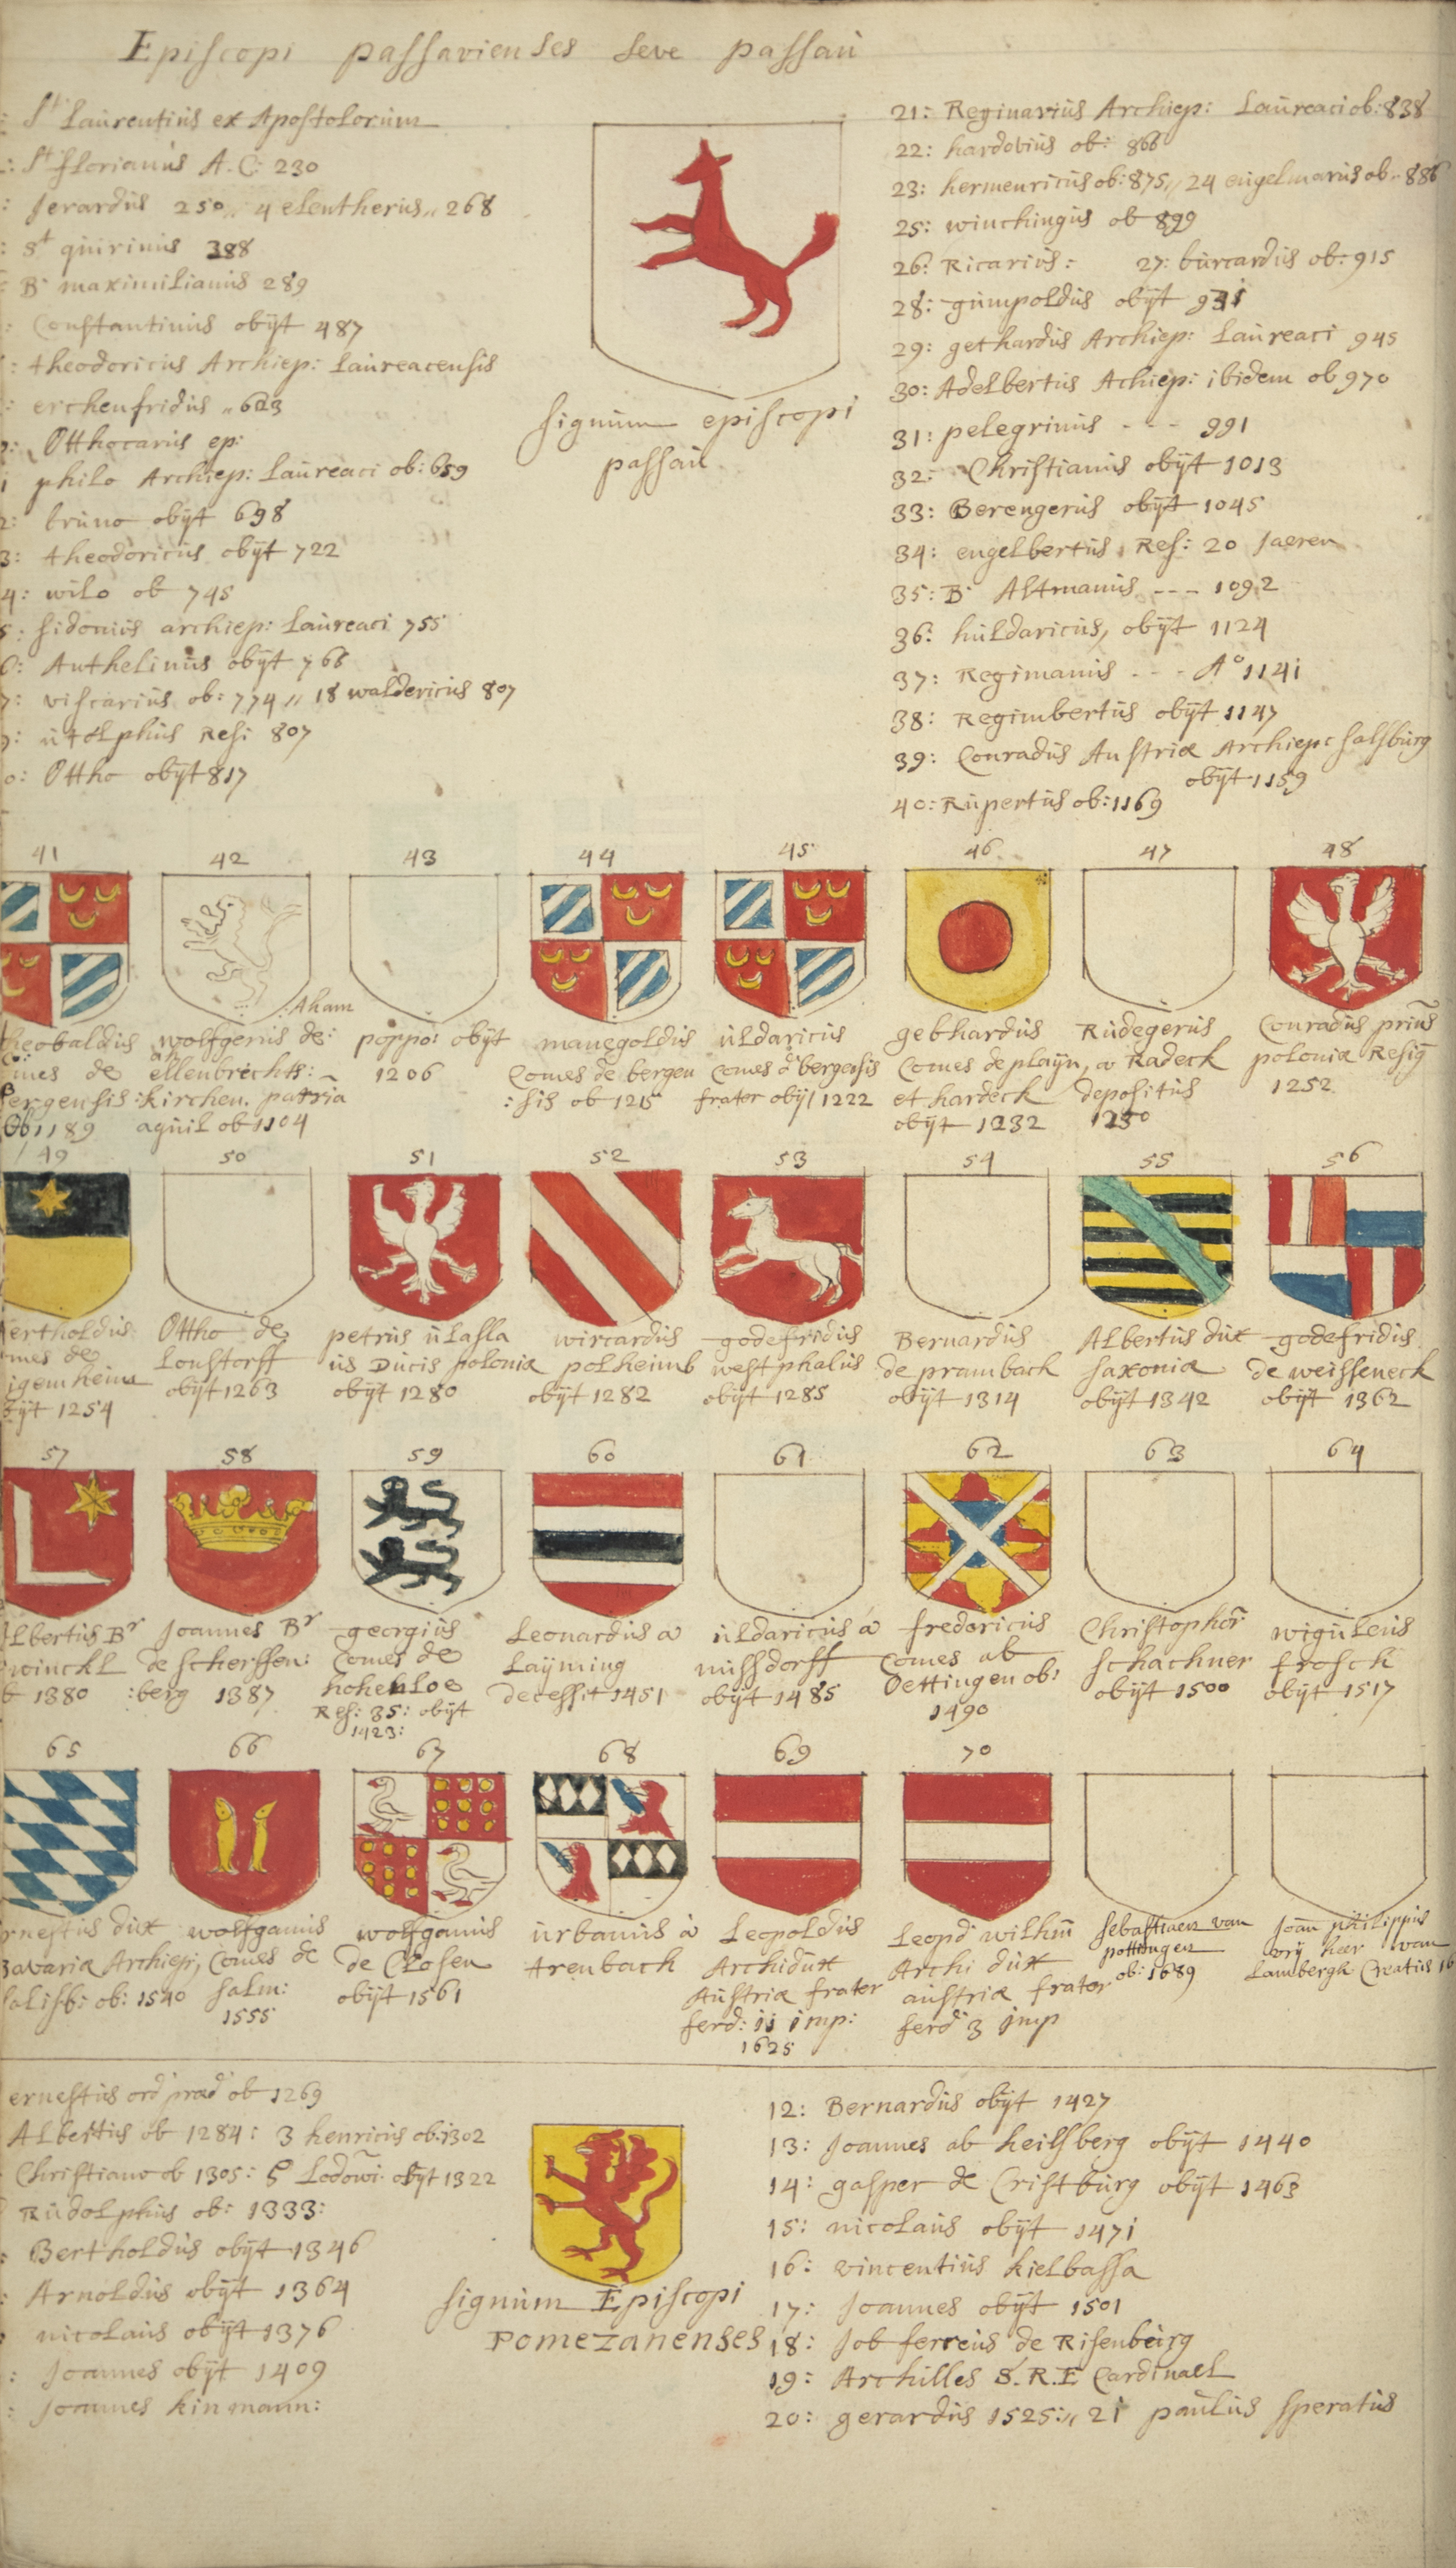 Episcopi passavienses seve passau
: St Laurentius ex Apostolorum
: St florianus A.C: 230
: Jerardus 250,, 4 eleutherius,, 268
: St quirinus 388
: B. maximilianus 289
: Constantinus obijt 487
: theodoricus Archiep: Laureacensis
: erchenfridus ,, 623
: Otthocarus ep:
philo Archiep: Laureaci ob: 659
2: bruno obijt 698
3: theodoricus obijt 722
4: wilo ob 745
5: sidonius archiep: Laureaci 755
6: Anthelinus obijt 766
7: viscarius ob: 774 ,, 18 waldericus 807
9: utolphus Resi 807
0: Ottho obijt 817
signum episcopi
passau
21: Reginarius Archiep: Laureaci ob: 838
22: hardovius ob: 866
23: hermenricus ob: 875,, 24 engelmarus ob. 886
25: winchingus ob 899
26: Ricarius: 27: burcardus ob: 915
28: gumpoldus obijt 931
29: gethardus Archiep: Laureaci 945
30: Adelbertus Achiep: ibidem ob 970
31: pelegrinus - - - 991
32: Christianus obijt 1013
33: Berengerus obijt 1045
34: engelbertus, Res: 20 Jaeren
35: B. Altmanus - - - 1092
36: huldaricus, obijt 1124
37: Regimanus - - - Ao 1141
38: Regimbertus obijt 1147
39: Conradus Austriæ Archiepc salsburg
obijt 1159
40: Rupertus ob: 1169
41 42 43 44 45 46 47 48
heobaldus
Comes de
Bergensis:
Ob 1189
Aham
wolfgerus de:
ellenbrechts:
kirchen. patria
aquil ob 1104
poppo: obijt
1206
manegoldus
Comes de bergen
: sis ob 1215
uldaricus
Comes d bergensis
frater obijt 1222
gebhardus
Comes de playn,
et hardeck
obijt 1232
Rudegerus
a Radeck
depositus
1250
Conradus prius
poloniæ Resig
1252
49 50 51 52 53 54 55 56
ertholdus
mes de
igemheim
obijt 1254
Ottho de
Lonstorff
obijt 1263
petrus ulasla
us Ducis poloniæ
obijt 1280
wircardus
polheimb
obijt 1282
godefridus
westphalus
obijt 1285
Bernardus
de pramback
obijt 1314
Albertus dux
saxoniæ
obijt 1342
godefridus
de weisseneck
obijt 1362
57 58 59 60 61 62 63 64
Albertus Br
winckl
ob 1380
Joannes Br
de scherffen:
:berg 1387
georgius
Comes de
hohenloe
Res: 35: obijt
1423:
Leonardus a
Layming
decessit 1451
uldaricus a
nussdorff
obijt 1485
fredericus
Comes ab
Oettingen ob:
1490
Christophor
schachner
obijt 1500
wiguleus
frosch
obijt 1517
65 66 67 68 69 70
rnestus dux
Bavariæ Archiep,
salisb: ob: 1540
wolfganus
Comes de
salm:
1555
wolfganus
de Closen
obijt 1561
urbanus à
trenbach
Leopoldus
Archidux
Austriæ frater
ferd: ii imp:
1625
Leopd wilhm
Archi dux
austriæ frater
ferd 3 imp
sebastiaen van
pottingen
ob: 1689
Joan philippus
vrij heer van
Lambergh Creatus 16
ernestus ord præd ob 1269
Albertus ob 1284: 3 henricus ob: 1302
Christiano ob 1305: 5 Lodowi obijt 1322
Rudolphus ob: 1333:
: Bertholdus obijt 1346
: Arnoldus obijt 1364
nicolaus obijt 1376
: Joannes obijt 1409
: Joannes kinmann:
signum Episcopi
Pomezanenses
12: Bernardus obijt 1427
13: Joannes ab heilsberg obijt 1440
14: gasper de Cristburg obijt 1463
15: nicolaus obijt 1471
16: vincentius kielbassa
17: Joannes obijt 1501
18: Job ferreus de Risenbeirg
19: Archilles S.R.E Cardinael
20: gerardus 1525:,, 21 paulus speratus